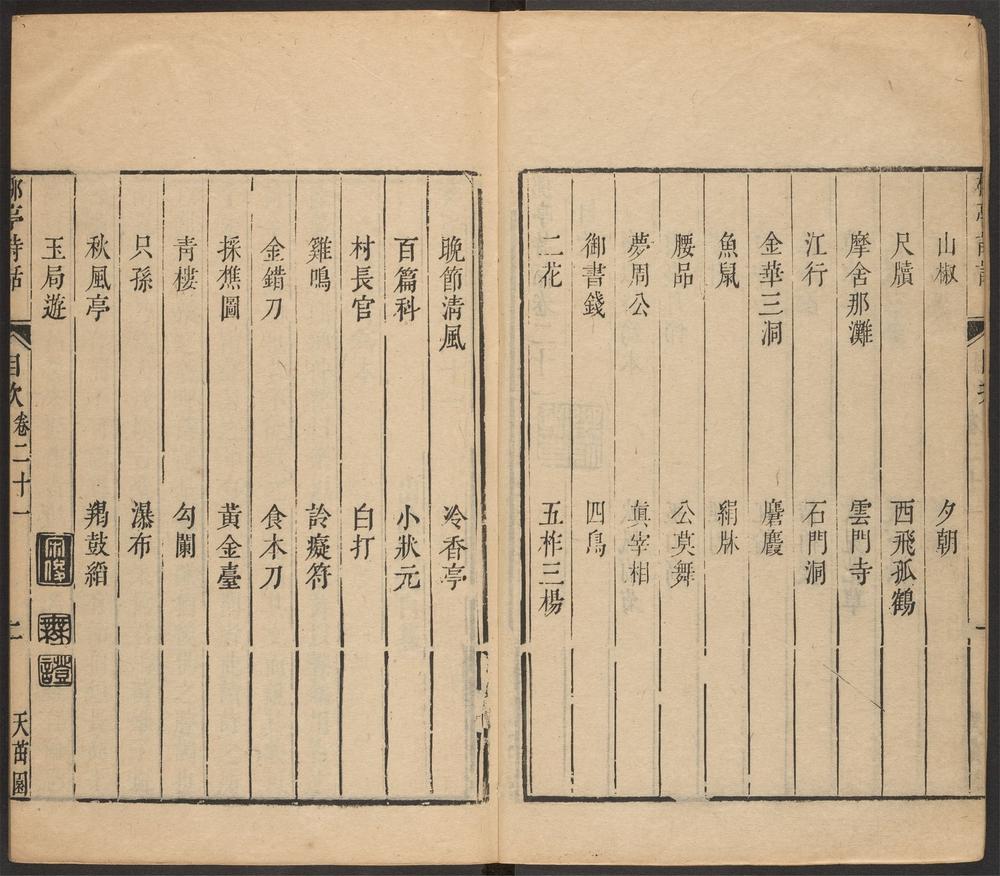 山椒 夕朝
尺牘 西飛孤鶴
摩舍那灘 雲門寺
江行 石門洞
金華三洞 麿麚
魚鼠 絹牀
腰品 公莫舞
夢周公 眞宰相
御書錢 四鳥
二花 五柞三楊
晚節清風 冷香亭
百篇科 小狀元
村長官 白打
雞鳴 詅癡符
金錯刀 食木刀
採樵圖 黃金臺
青樓 勾闌
只孫 瀑布
秋風亭 羯鼓縚
玉局遊
柳亭詩話 目次 卷二十一 二 天茁園